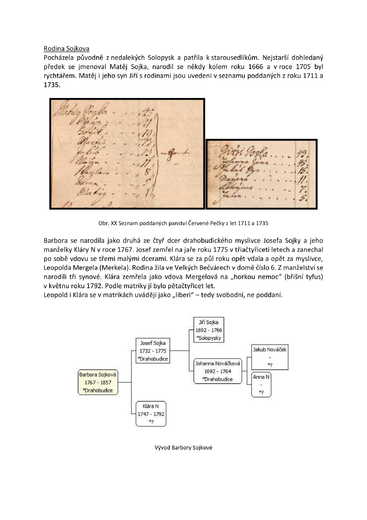 Rodina Sojkova
Pocházela původně z nedalekých Solopysk a patřila k starousedlíkům. Nejstarší dohledaný
předek se jmenoval Matěj Sojka, narodil se někdy kolem roku 1666 a v roce 1705 byl
rychtářem. Matěj i jeho syn Jiří s rodinami jsou uvedeni v seznamu poddaných z roku 1711 a
1735.
Obr. XX Seznam poddaných panství Červené Pečky z let 1711 a 1735
Barbora se narodila jako druhá ze čtyř dcer drahobudického myslivce Josefa Sojky a jeho
manželky Kláry N v roce 1767. Josef zemřel na jaře roku 1775 v třiačtyřiceti letech a zanechal
po sobě vdovu se třemi malými dcerami. Klára se za půl roku opět vdala a opět za myslivce,
Leopolda Mergela (Merkela). Rodina žila ve Velkých Bečvárech v domě číslo 6. Z manželství se
narodili tři synové. Klára zemřela jako vdova Mergelová na „horkou nemoc“ (břišní tyfus)
v květnu roku 1792. Podle matriky jí bylo pětačtyřicet let.
Leopold i Klára se v matrikách uvádějí jako „liberi“ – tedy svobodní, ne poddaní.
Jiří Sojka
1692 - 1766
*Solopysky
Josef Sojka
1732 - 1775
*Drahobudice
Jakub Nováček
-
*?
Johanna Nováčková
1692 - 1764
*Drahobudice
Barbora Sojková
1767 - 1857
*Drahobudice
Anna N
-
*?
Klára N
1747 - 1792
*?
Vývod Barbory Sojkové